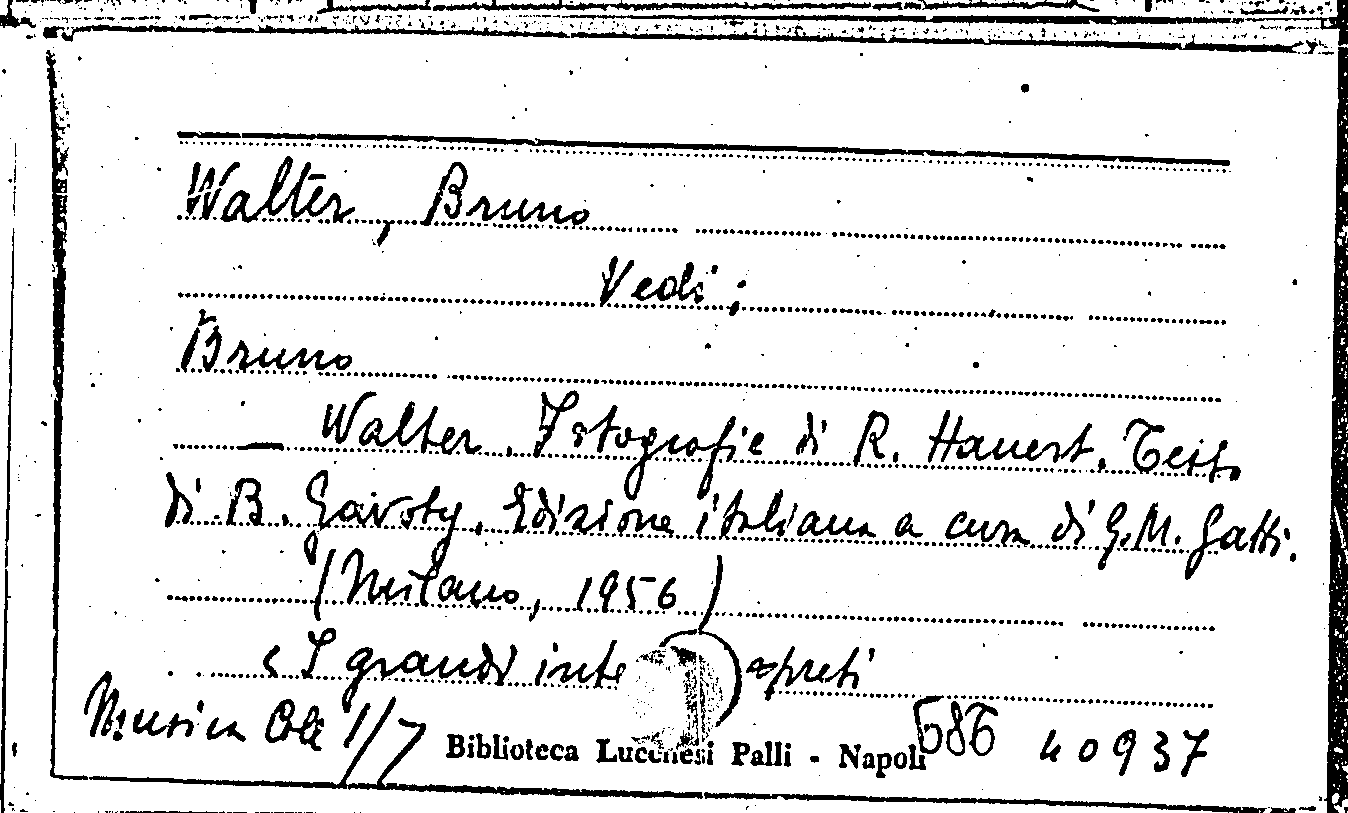 Walter, Bruno
Vedi:
Bruno
— Walter. Fotografie di R. Hauert. Testo
di B. Gavoty. Edizione italiana a cura di G. M. Gatti.
(Milano, 1956)
< I grandi interpreti
Musica Coll 1/7 Biblioteca Lucchesi Palli - Napoli 40937